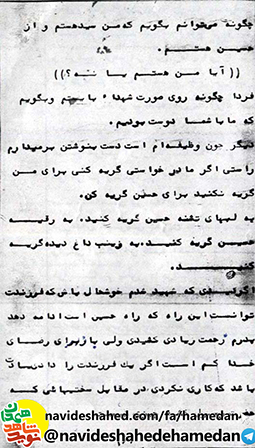 چگونه می‌توانم بگویم که من سیدهستم و از
حسین هستم.
((آیا من هستم یا نه؟))
فردا چگونه روی صورت شهداء بایستم وبگویم
که ما با شما دوست بودیم.
دیگر چون وظیفه‌ام است دست بنوشتن برمیدارم
راستی اگر مادر خواستی گریه کنی برای من
گریه نکنید برای حسین گریه کن.
به لبهای تشنه حسین گریه کنید. به رقیه
حسین گریه کنید، به زینب داغ دیده گریه
کنید.
که شهید شدم خوشحال باش که فرزندت
توانست این راه که راه حسین است ادامه دهد
پدرم زحمت زیادی کشیدی ولی باز برای رضای
خدا کم است اگر یک فرزندت را دادی
باشد که کاری نکردی، در مقابل سختیهائی که
navideshahed.com/fa/hamedan
@navideshahedehamedan